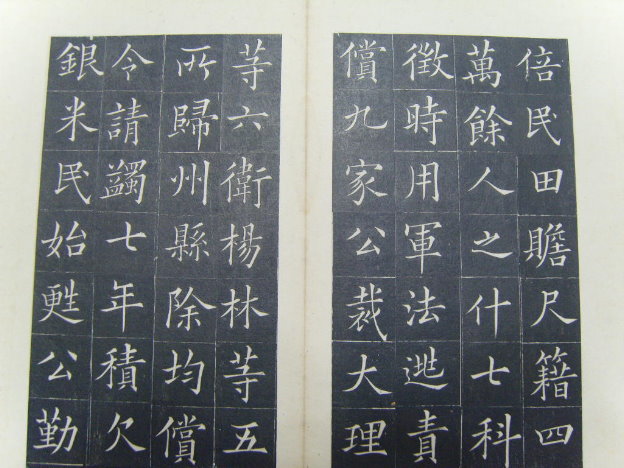 倍民田贍尺籍四
萬餘人之什七科
徵時用軍法逃責
償九家公裁大理
䓁六衛楊林䓁五
所歸州縣除均償
令請蠲七年積欠
銀米民始甦公勤